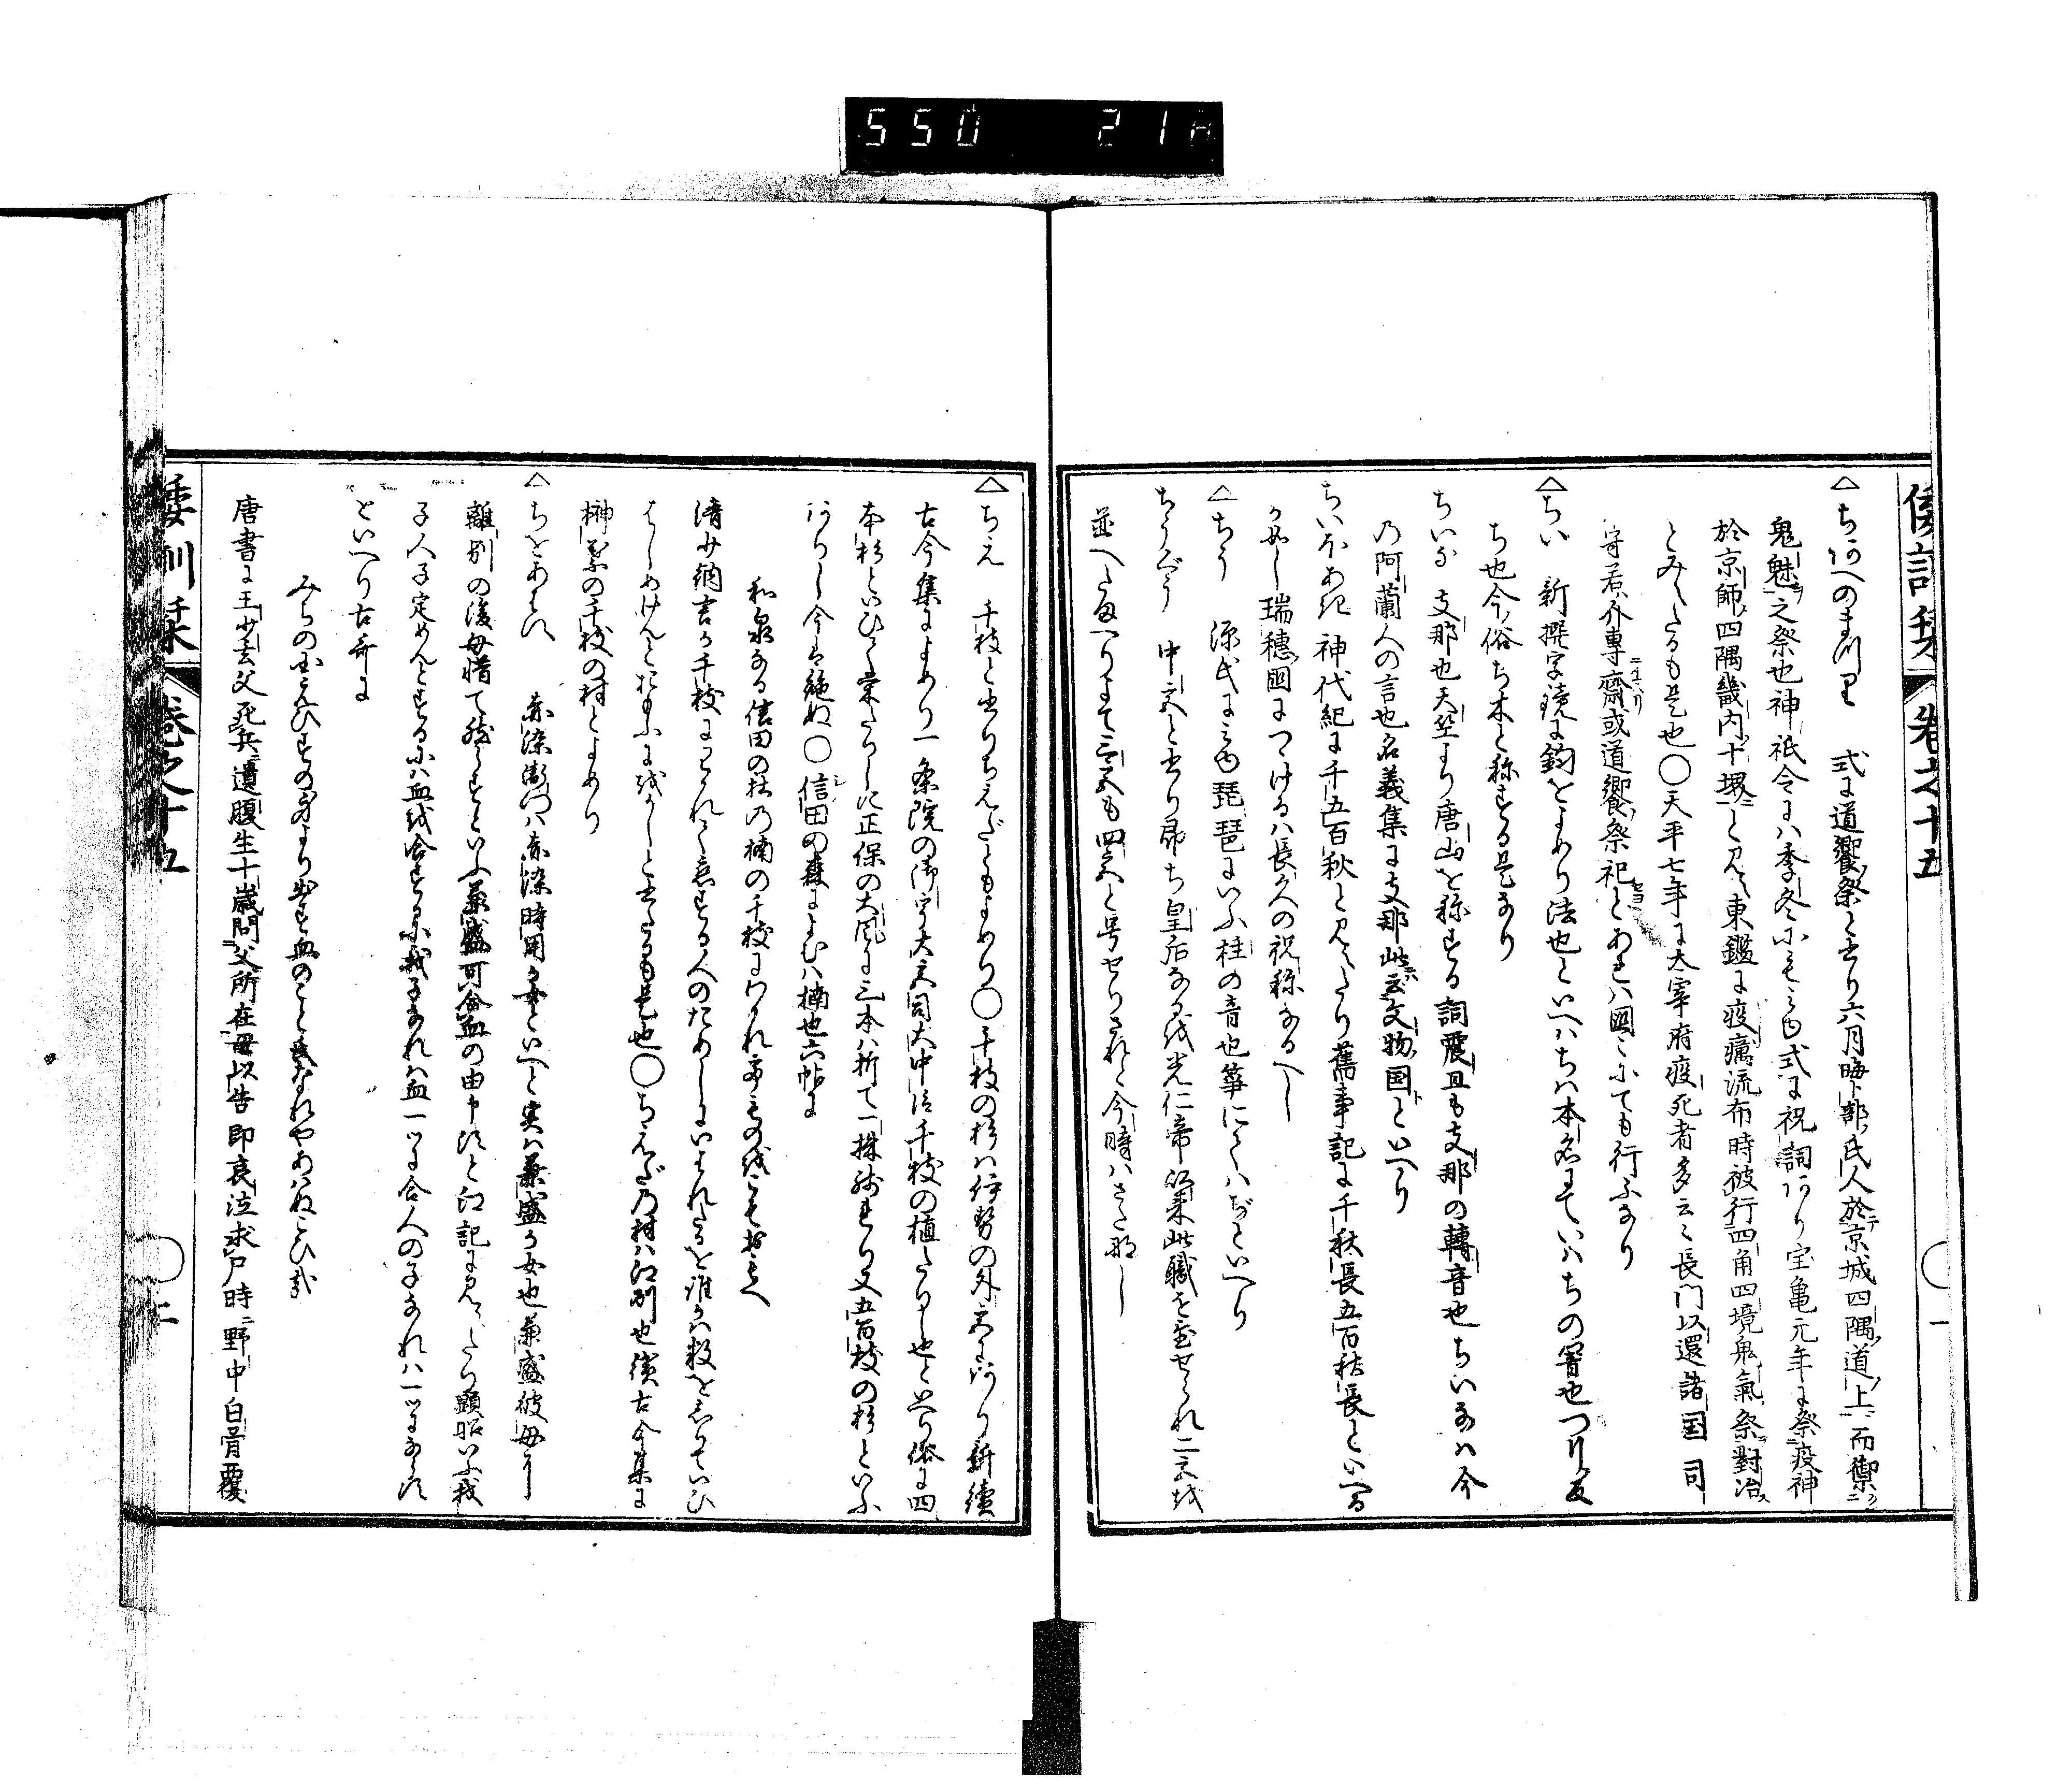 550 21
倭訓栞 卷之十五 一
△ちあへのまつり 式に道饗祭と書り六月晦卜部氏人於京城四隅道上而禦
鬼魅之祭也神祇令には季冬にも見ゆ式に祝詞あり宝亀元年に祭疫神
於京師四隅畿内十堺と見え東鑑に疫癘流布時被行四角四境鬼氣祭對治
とみえたるも是也○天平七年に太宰府疫死者多云々長門以還諸国司
守若介專齋戒道饗祭祀とあれは國々にても行ふなり
△ちい 新撰字鏡に鈎をよめり法也といへはちは本名にていはちの響也つりをも
ち也今俗ち木と称する是なり
ちいな 支那也天竺より唐山を称する詞震旦も支那の轉音也ちいなは今
乃阿蘭人の言也名義集に支那此云文物国といへり
ちいほあき 神代紀に千五百秋と見えたり舊事記に千秋長五百秋長といへる
か如し瑞穗國につけるは長久の祝称なるへし
△ちう 源氏にみゆ琵琶にいふ柱の音也箏にてはぢといへり
ちうぐう 中宮と書り即ち皇后なるを光仁帝以来此職を置せられ二宮を
並へたまへりまて三宮も四宮と号せりされと今時はさた那し
△ちえ 千枝と書りちえだともよめり○千枝の杉は伊勢の外宮にあり新續
古今集によめり一条院の御宇大宮司大中臣千枝の植たりし也と云り俗に四
本杉といひて榮たりしに正保の大風に三本は折て一株残れり又五百枝の杉といふ
ありし今は絶ぬ○信田の森によむは楠也六帖に
和泉なる信田の杜の楠の千枝にわかれて物をこそおもへ
清少納言か千枝にわかれて恋する人のためしにいはれたるを誰かは数をしりていひ
はしめけんとおもふにをかしと書たるも是也○ちえだの村は江州也續古今集に
榊葉の千枝の村とよめり
△ちをあはす 赤染衛門は赤染時用か女といへと実は兼盛か女也兼盛彼母に
離別の後母惜て残らすといふ兼盛可合血の由申すと江記に見えたり顕昭いふ我
子人子定めんとするには血を合するに我子なれは血一つに合人の子なれは一つにならす
といへり古哥に
みちの国えひすの身より出す血のことなれやあはぬこひ哉
唐書に王少玄父死兵遺腹生十歳問父所在母以告即哀泣求尸時野中白骨覆
倭訓栞 卷之十五 二